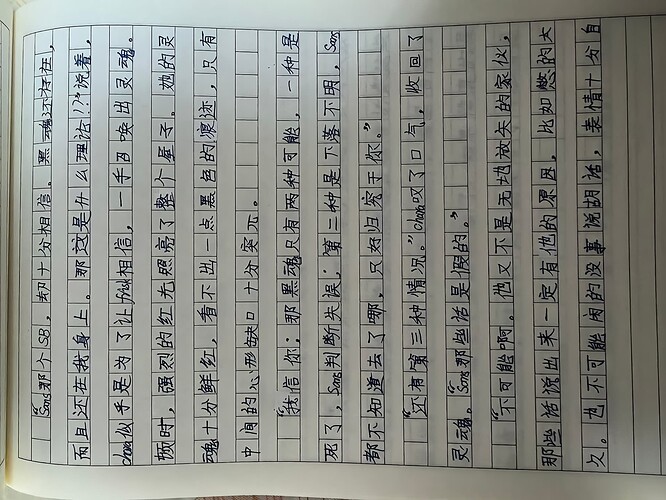 “Sans那个SB，却十分相信。黑魂还存在，
而且还在我身上。那这是什么理论！？”说着，
chara似乎是为了让frisk相信，一手召唤出灵魂。
顿时，强烈的红光照亮了整个屋子。她的灵
魂十分鲜红，看不出一点黑色的痕迹，只有
中间的心形缺口十分突兀。
“我信你；那黑魂只有两种可能，一种是
死了，Sans判断失误；第二种是下落不明，Sans
都不知道去了哪，只好归究于你。”
“还有第三种情况。”chara叹了口气，收回了
灵魂。“Sans那些话是假的。”
“不可能啊。他又不是无地放矢的家伙，
那些话说出来一定有他的原因，比如憋的太
久。也不可能闲的没事说胡话，表情十分自